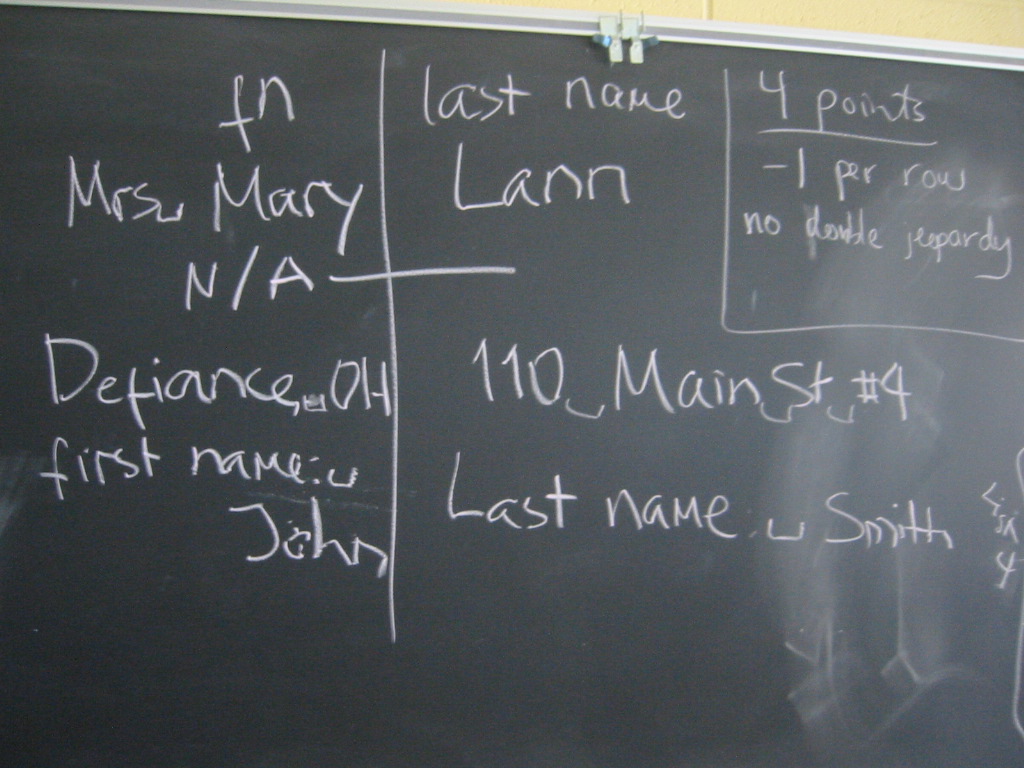 fn last name
Mrs. Mary Lann
N/A
Defiance, OH 110 Main St #4
first name: Last name: Smith
John
4 points
-1 per row
no double jeopardy
4